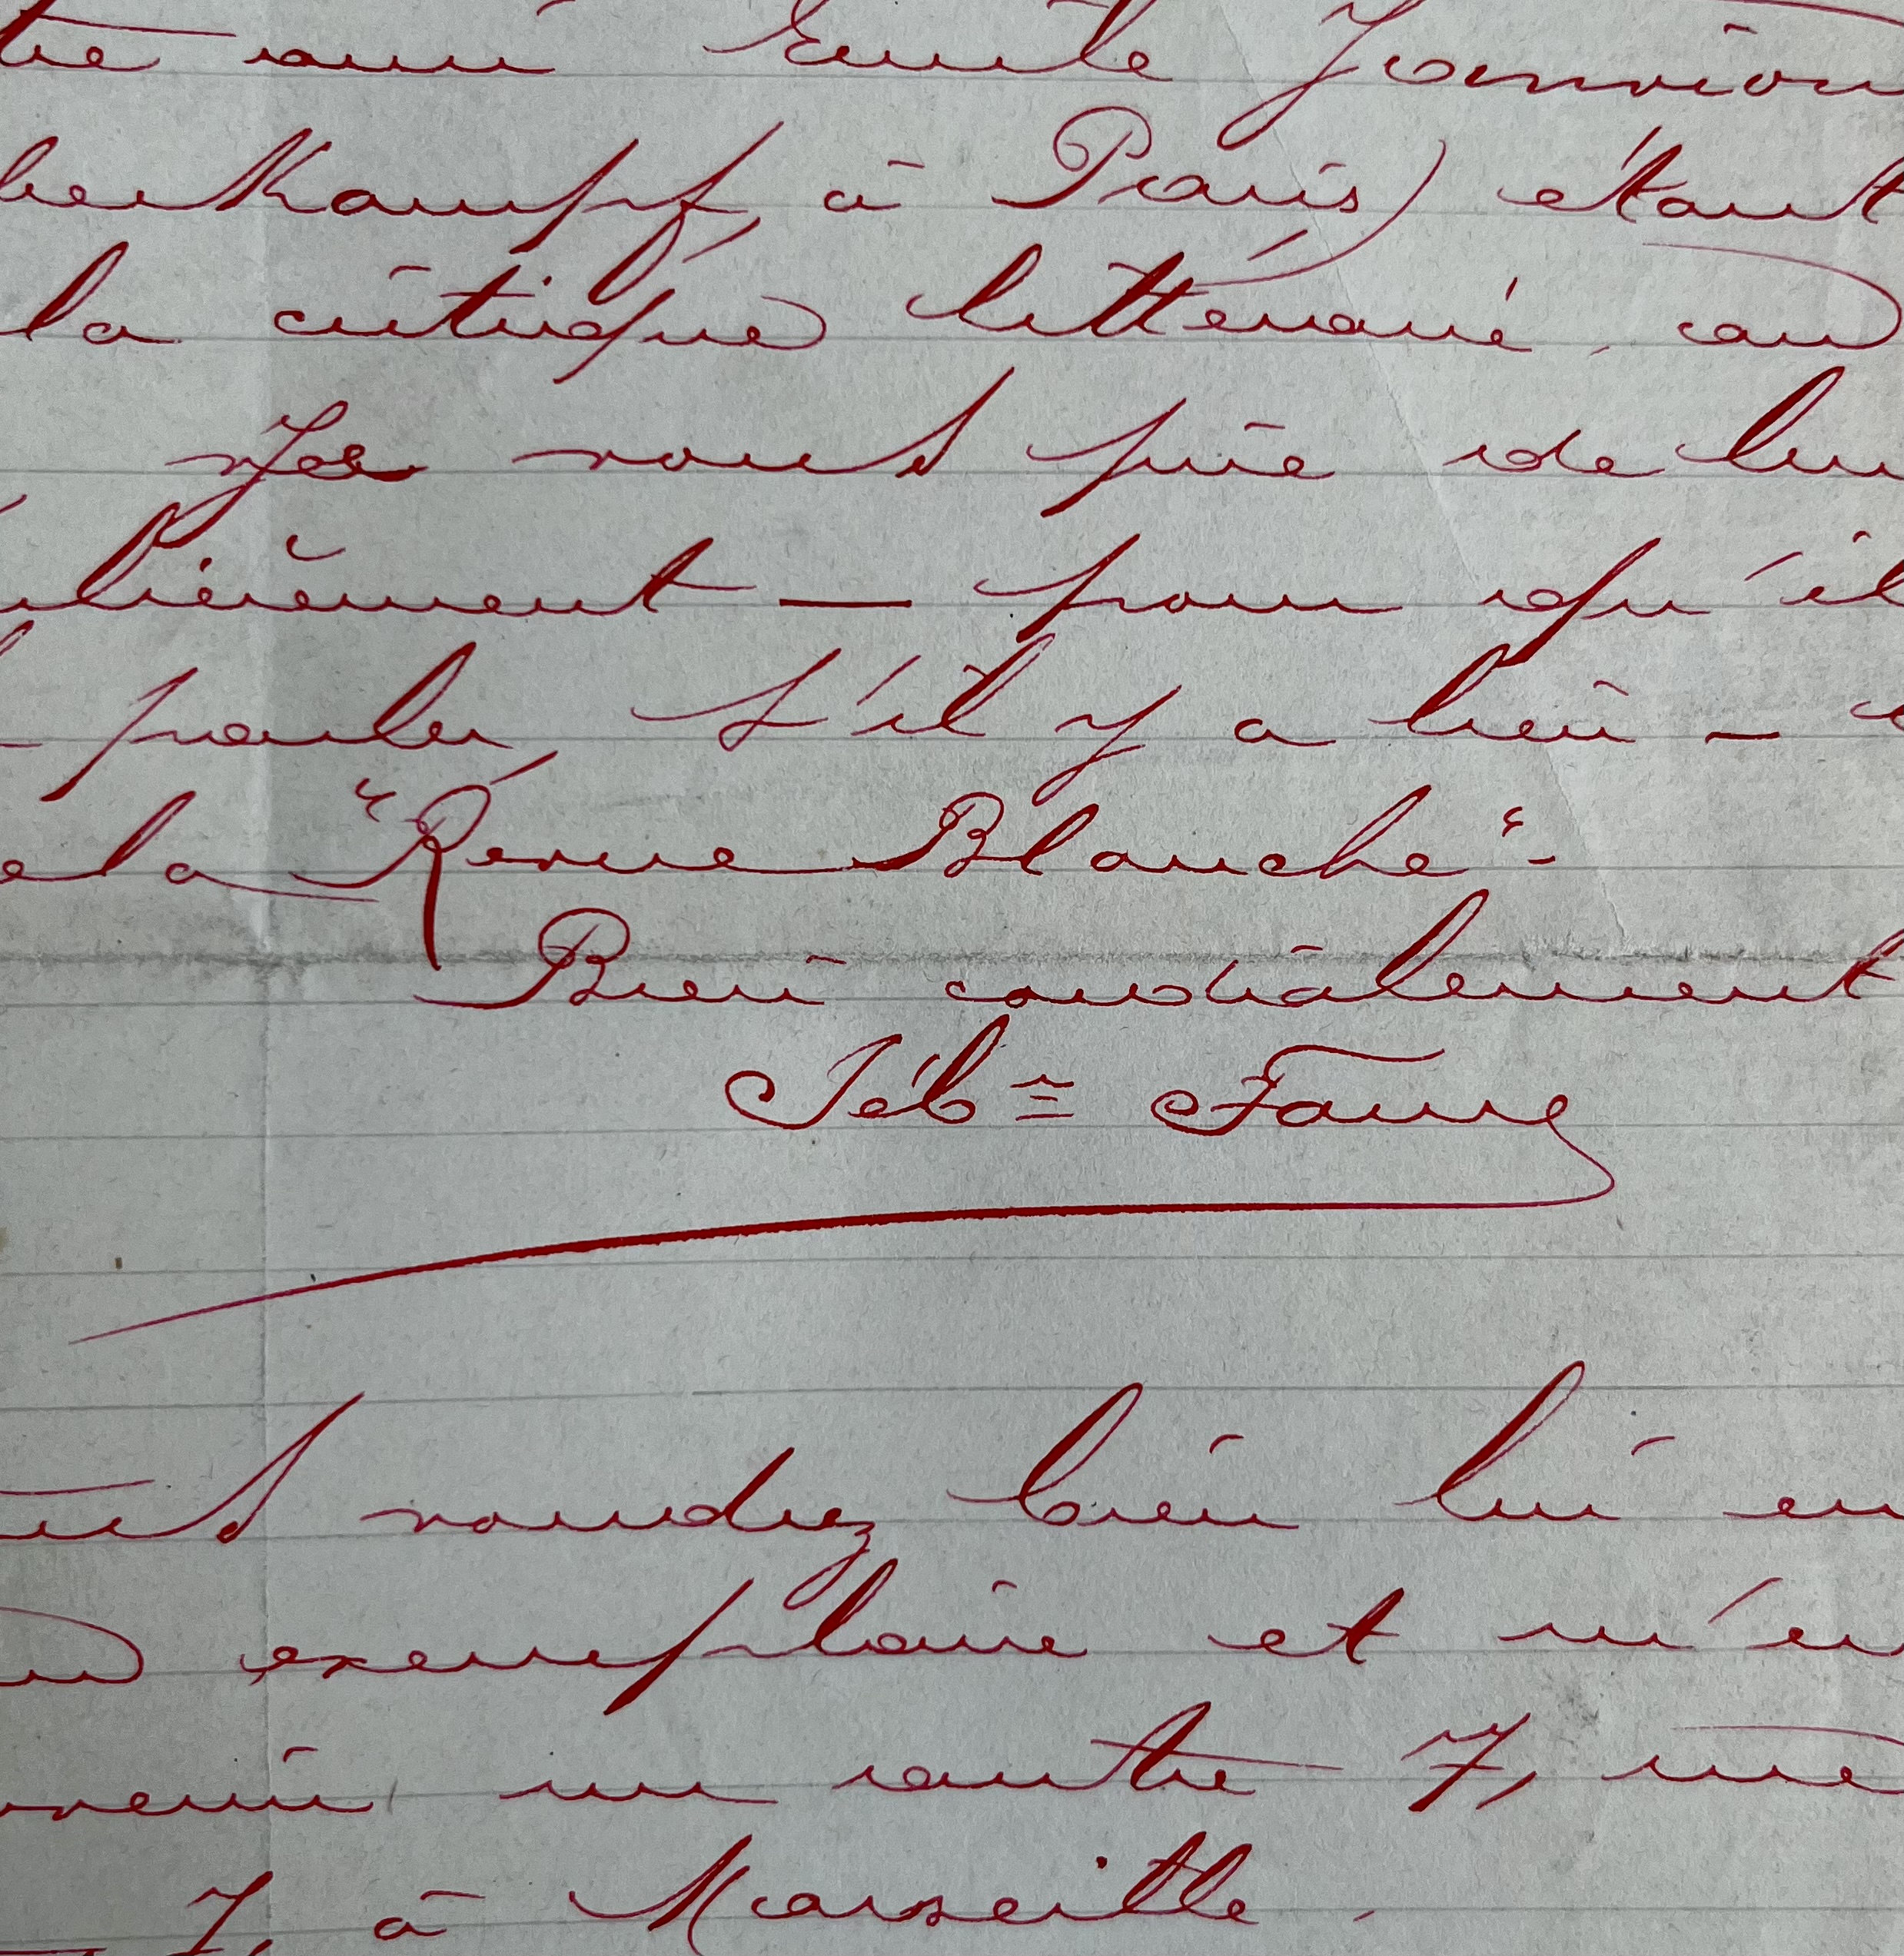 tre ami Emile Janvion
berkampf, à Paris) étant
la critique littéraire, au
Je vous prie de lui
ulièrement — pour qu'il
- parler, s'il y a lieu -
e la "Revue Blanche" -
Bien cordialement
Séb = Faure
ous voudrez bien lui en
un exemplaire et m'en
rvenir un autre 7, rue
7, à Marseille.